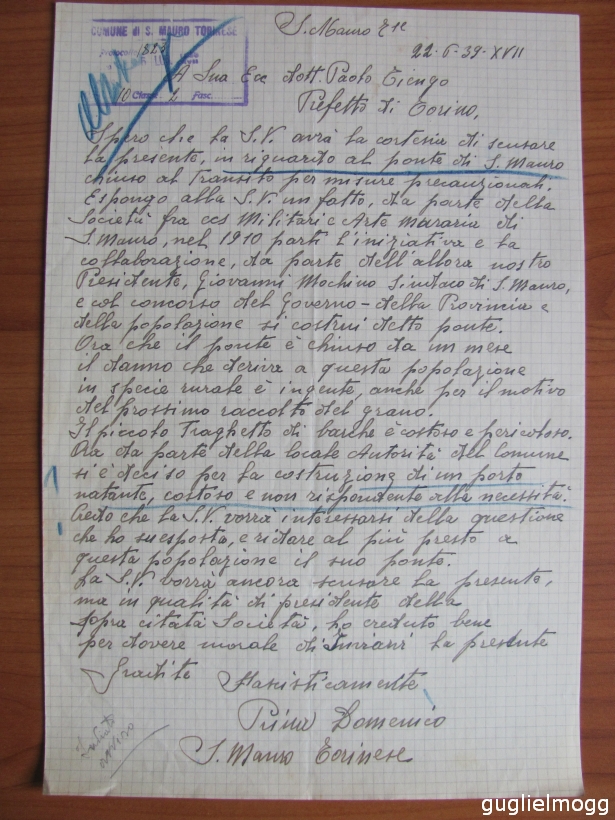 S. Mauro Tse
COMUNE di S. MAURO TORINESE
22-6-39-XVII
A Sua Ecc dott. Paolo Tiengo
10 Class. 2 Fasc.
Prefetto di Torino,
Spero che la S.V. avrà la cortesia di scusare
la presente, in riguardo al ponte di S. Mauro
chiuso al Transito per misure precauzionali.
Espongo alla S.V. un fatto, da parte della
Società fra ces Militari e Arte Muraria di
S. Mauro, nel 1910 partì l'iniziativa e la
collaborazione, da parte dell'allora nostro
Presidente, Giovanni Mochino Sindaco di S. Mauro,
e col concorso del Governo - della Provincia e
della popolazione si costruì detto ponte.
Ora che il ponte è chiuso da un mese
il danno che deriva a questa popolazione
in specie rurale è ingente, anche per il motivo
del prossimo raccolto del grano.
Il piccolo Traghetto di barche è costoso e pericoloso.
Ora da parte della locale Autorità del Comune
si è deciso per la costruzione di un porto
natante, costoso e non rispondente alla necessità.
Credo che la S.V. vorrà interessarsi della questione
che ho suesposta, e ridare al più presto a
questa popolazione il suo ponte.
La S.V. vorrà ancora scusare la presente,
ma in qualità di presidente della
sopra citata Società, ho creduto bene
per dovere morale di la presente
Gradite Fascisticamente
Prina Domenico
S. Mauro Torinese
guglielmogg